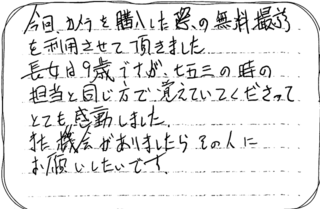 今回、カメラを購入した際の無料撮影
を利用させて頂きました
長女は9歳ですが、七五三の時の
担当と同じ方で覚えていてくださって
とても感動しました。
また機会がありましたらその人に
お願いしたいです。